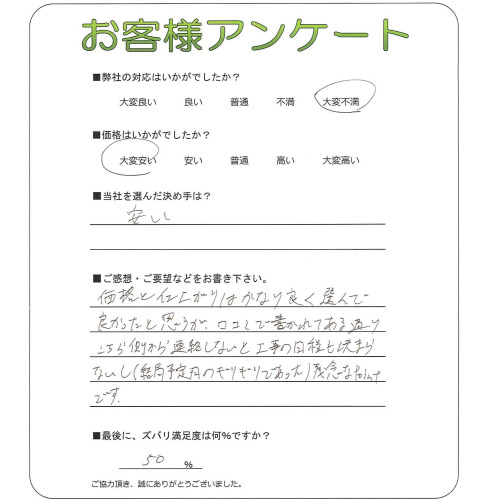 お客様アンケート
■弊社の対応はいかがでしたか？
大変良い 良い 普通 不満 大変不満
■価格はいかがでしたか？
大変安い 安い 普通 高い 大変高い
■当社を選んだ決め手は？
安い
■ご感想・ご要望などをお書き下さい。
価格と仕上がりはかなり良く選んで
良かったと思うが、口コミで書かれてある通り
こちら側から連絡しないと工事の日程も決まら
ないし(結局予定月のギリギリであった)残念な
です。
■最後に、ズバリ満足度は何％ですか？
50 ％
ご協力頂き、誠にありがとうございました。